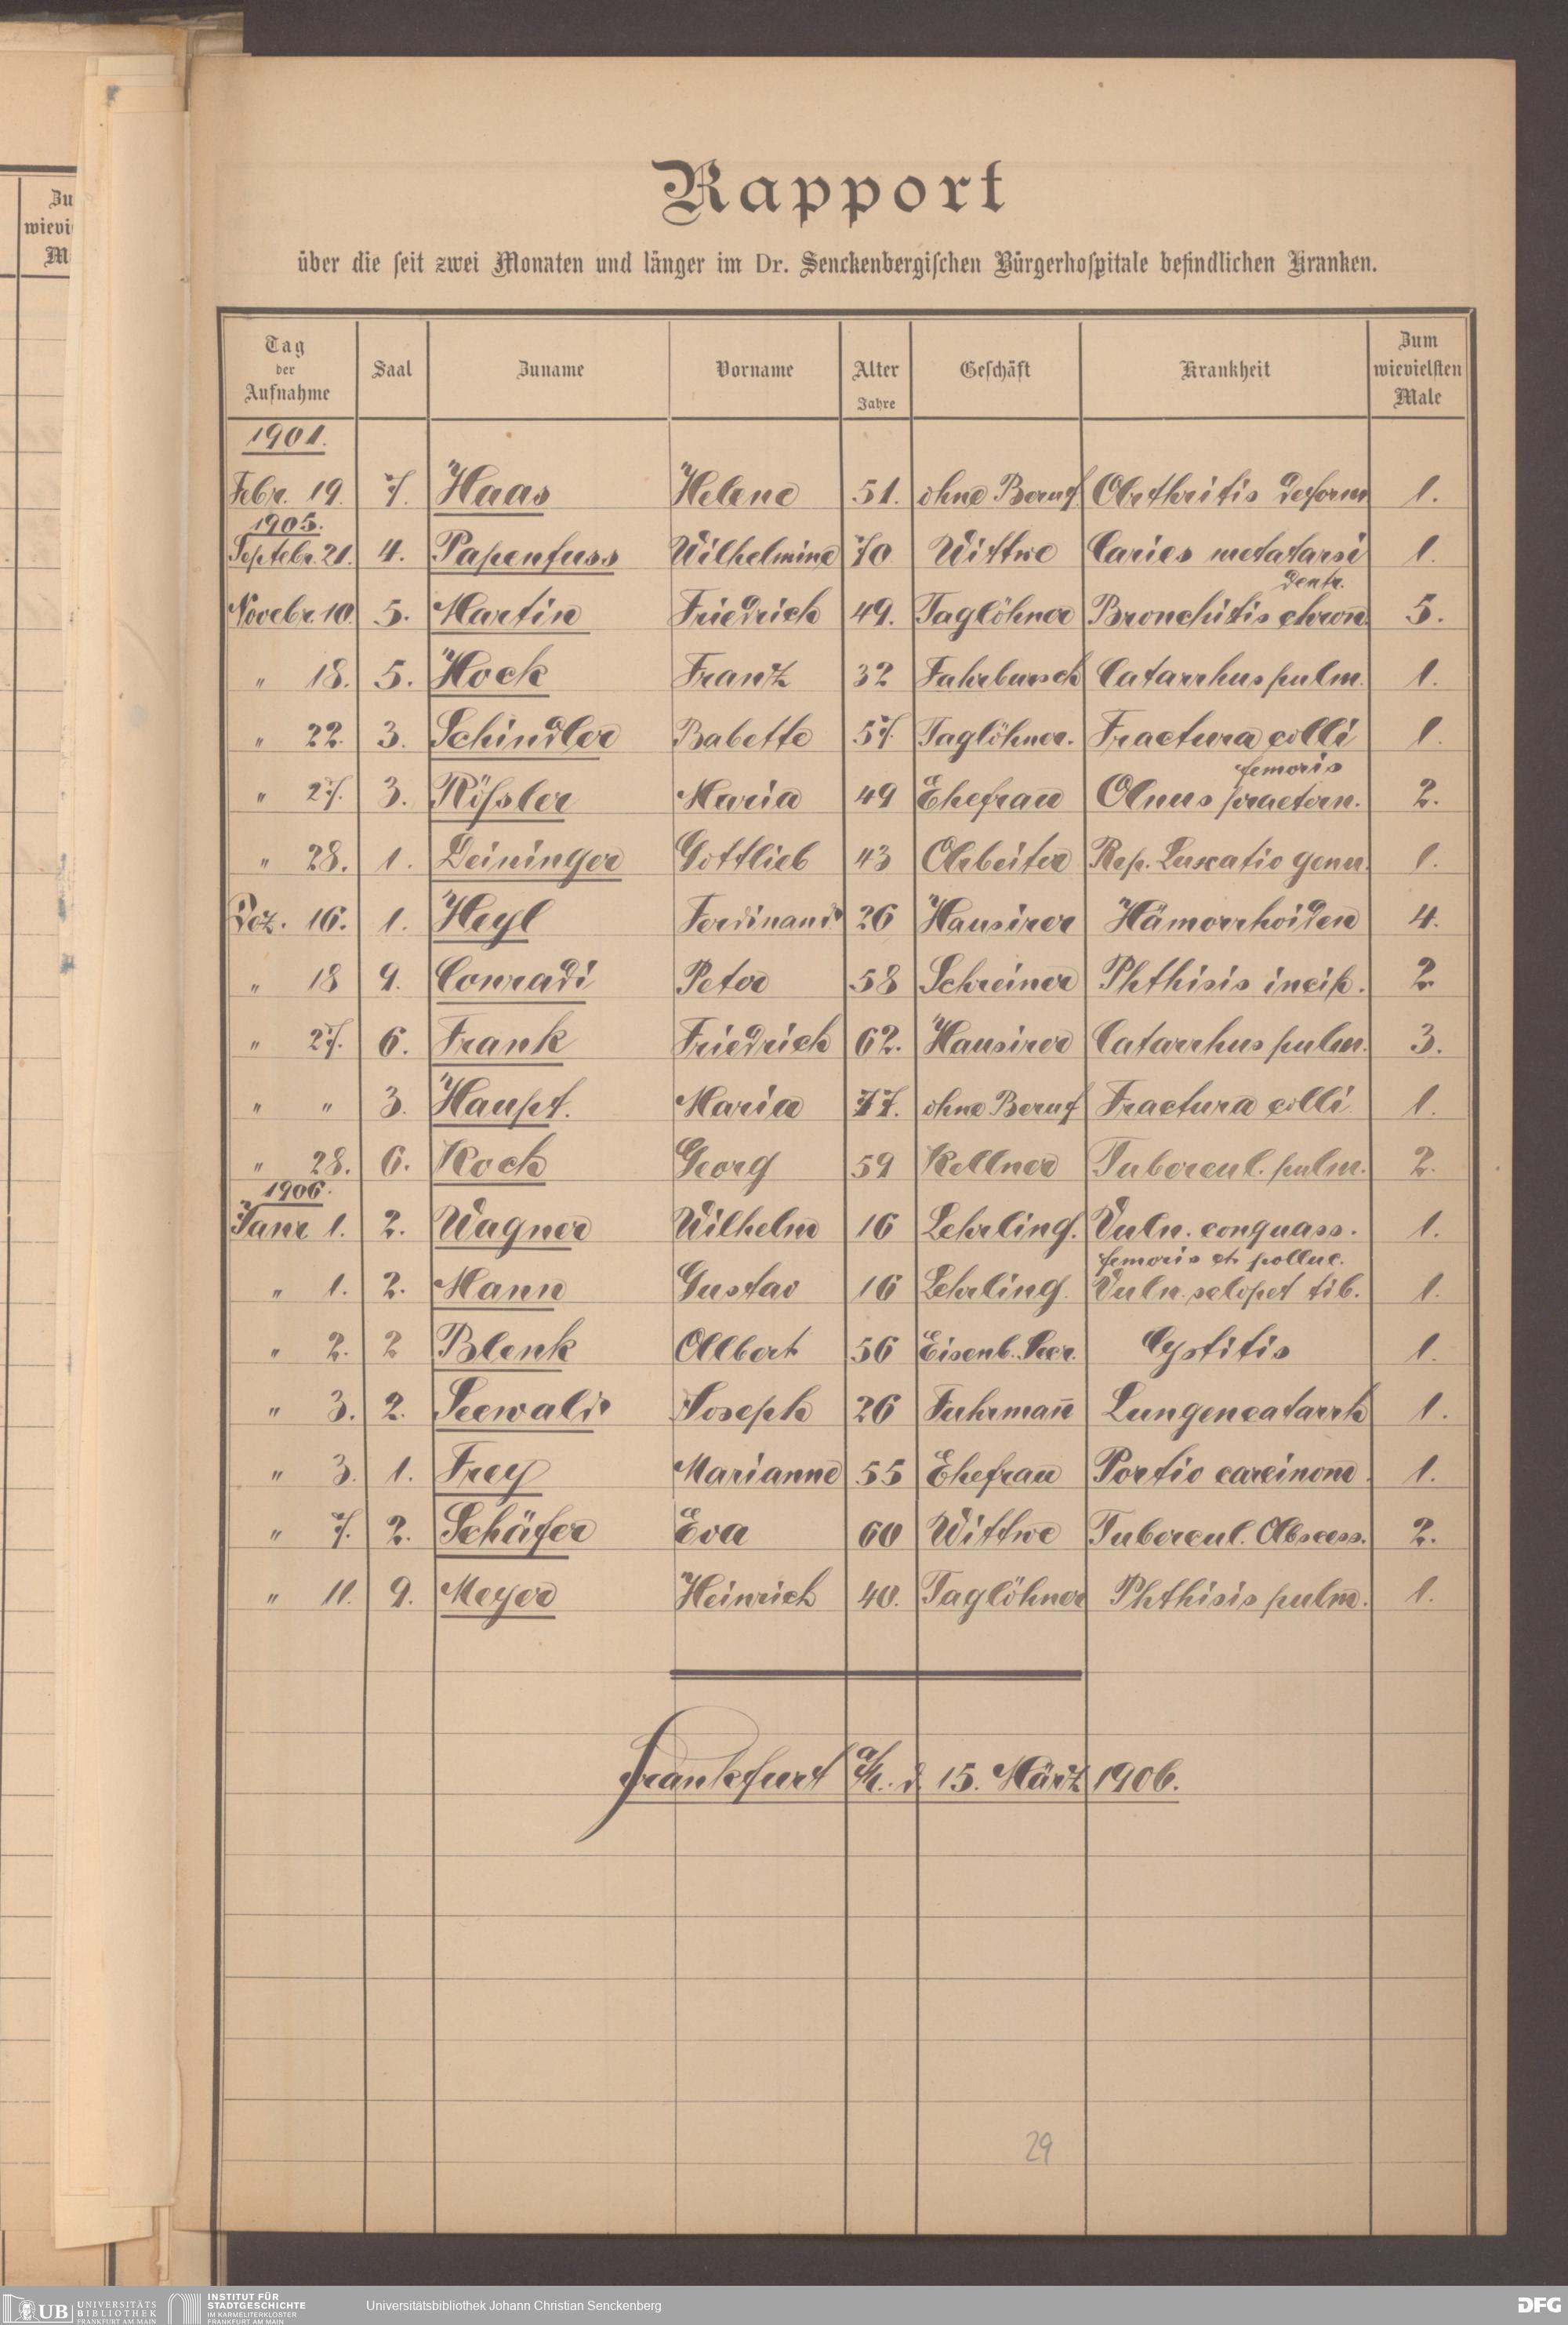 Zu
wievi
M
Rapport
über die seit zwei Monaten und länger im Dr. Senckenbergischen Bürgerhospitale befindlichen Kranken.
Tag der Aufnahme Saal Zuname Vorname Alter Jahre Geschäft Krankheit Zum wievielsten Male
1901.
Febr. 19. 7. Haas Helene 51. ohne Beruf. Arthritis deform 1.
1905.
Septebr. 21. 4. Papenfuss Wilhelmine 70 Wittwe Caries metatarsi dextr. 1.
Novebr. 10. 5. Martin Friedrich 49. Taglöhner Bronchitis chron. 5.
" 18. 5. Hock Franz 32 Fahrbursch Catarrhus pulm. 1.
" 22. 3. Schindler Babette 57. Taglöhner. Fractura colli femoris 1.
" 27. 3. Rißler Maria 49 Ehefrau Anus praetern. 2.
" 28. 1. Deininger Gottlieb 43 Arbeiter Rep. Luxatio genu. 1.
Dez. 16. 1. Heyl Ferdinand 26 Hausirer Hämorrhoiden 4.
" 18 9. Conradi Peter 58 Schreiner Phthisis incip. 2
" 27. 6. Frank Friedrich 62. Hausirer Catarrhus pulm. 3.
" " 3. Haupt. Maria 77. ohne Beruf Fractura colli 1.
" 28. 6. Koch Georg 59 Kellner Tubercul. pulm. 2.
1906.
Janr 1. 2. Wagner Wilhelm 16 Lehrling. Vuln. conquass. femoris et polluc. 1.
" 1. 2. Mann Gustav 16 Lehrling. Vuln. sclopet tib. 1.
" 2. 2 Blenk Albert 56 Eisenb. Secr. Cystitis 1.
" 3. 2. Seewald Joseph 26 Fuhrmañ Lungencatarrh 1.
" 3. 1. Frey Marianne 55 Ehefrau Portio carcinom. 1.
" 7. 2. Schäfer Eva 60 Wittwe Tubercul. Abscess. 2.
" 11. 9. Meyer Heinrich 40. Taglöhner Phthisis pulm. 1.
Frankfurt a/M. d. 15. März 1906.
29
UB UNIVERSITÄTS BIBLIOTHEK FRANKFURT AM MAIN
INSTITUT FÜR STADTGESCHICHTE IM KARMELITERKLOSTER FRANKFURT AM MAIN
Universitätsbibliothek Johann Christian Senckenberg
DFG